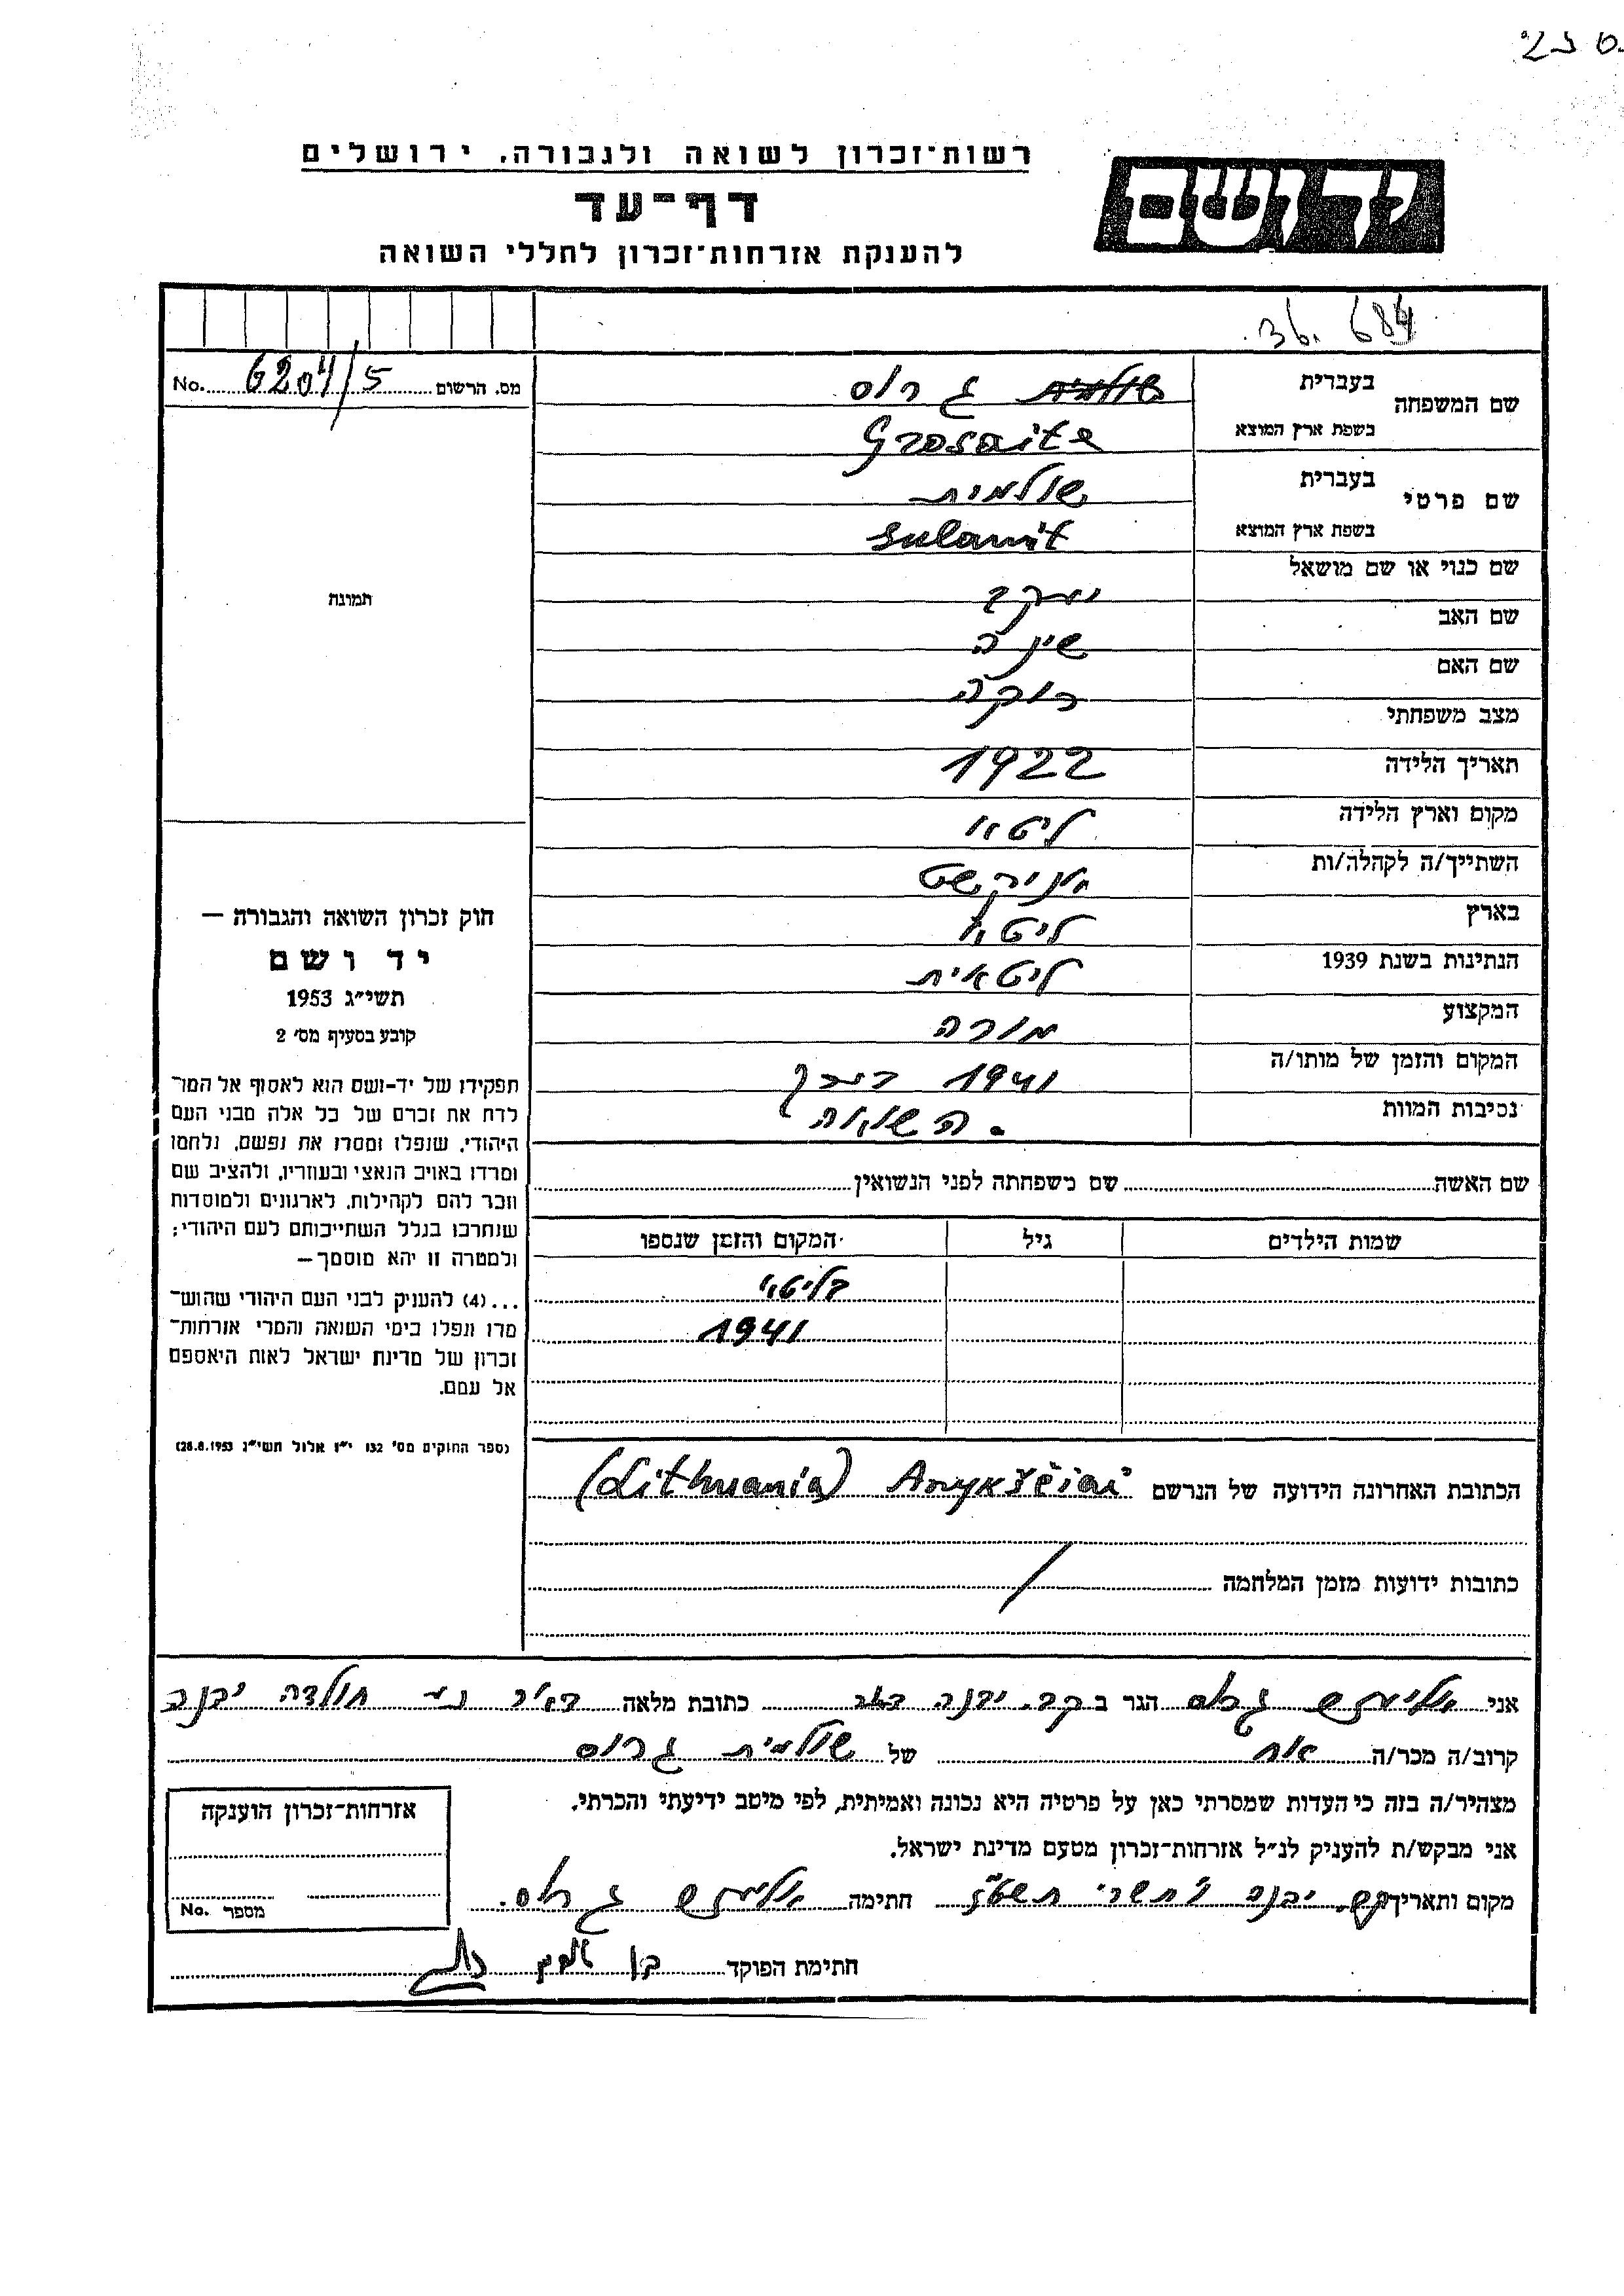 רשות־זכרון לשואה ולגבורה, ירושלים
יד ושם
דף־עד
להענקת אזרחות־זכרון לחללי השואה
36. 684
מס. הרשום 6204/5 No.
שם המשפחה בעברית שולמית גרוס
בשפת ארץ המוצא Grosaite
שם פרטי בעברית שולמית
בשפת ארץ המוצא Sulamit
שם כנוי או שם מושאל
שם האב יעקב
שם האם שינה
מצב משפחתי רוקה
תאריך הלידה 1922
מקום וארץ הלידה ליטא
השתייך/ה לקהלה/ות אניקשט
בארץ ליטא
הנתינות בשנת 1939 ליטאית
המקצוע מורה
המקום והזמן של מותו/ה 1941
נסיבות המוות השואה
תמונה
חוק זכרון השואה והגבורה —
יד ושם
תשי״ג 1953
קובע בסעיף מס׳ 2
תפקידו של יד-ושם הוא לאסוף אל המו־
לדת את זכרם של כל אלה מבני העם
היהודי, שנפלו ומסרו את נפשם, נלחמו
ומרדו באויב הנאצי ובעוזריו, ולהציב שם
וזכר להם לקהילות, לארגונים ולמוסדות
שנחרבו בגלל השתייכותם לעם היהודי;
ולמטרה זו יהא מוסמך—
...(4) להעניק לבני העם היהודי שהוש־
מדו ונפלו בימי השואה והמרי אזרחות־
זכרון של מדינת ישראל לאות היאספם
אל עמם.
(ספר החוקים מס׳ 132 י״ז אלול תשי״ג 28.8.1953)
שם האשה שם משפחתה לפני הנשואין
שמות הילדים גיל המקום והזמן שנספו
בליטא
1941
הכתובת האחרונה הידועה של הנרשם Anykščiai (Lithuania)
כתובות ידועות מזמן המלחמה /
אני גרוס הגר ב יבנה כתובת מלאה ד.נ. חולדה יבנה
קרוב/ה מכר/ה אח של שולמית גרוס
מצהיר/ה בזה כי העדות שמסרתי כאן על פרטיה היא נכונה ואמיתית, לפי מיטב ידיעתי והכרתי.
אני מבקש/ת להעניק לנ״ל אזרחות־זכרון מטעם מדינת ישראל.
מקום ותאריך יבנה תשרי חתימה גרוס
חתימת הפוקד בן
אזרחות־זכרון הוענקה
מספר No.